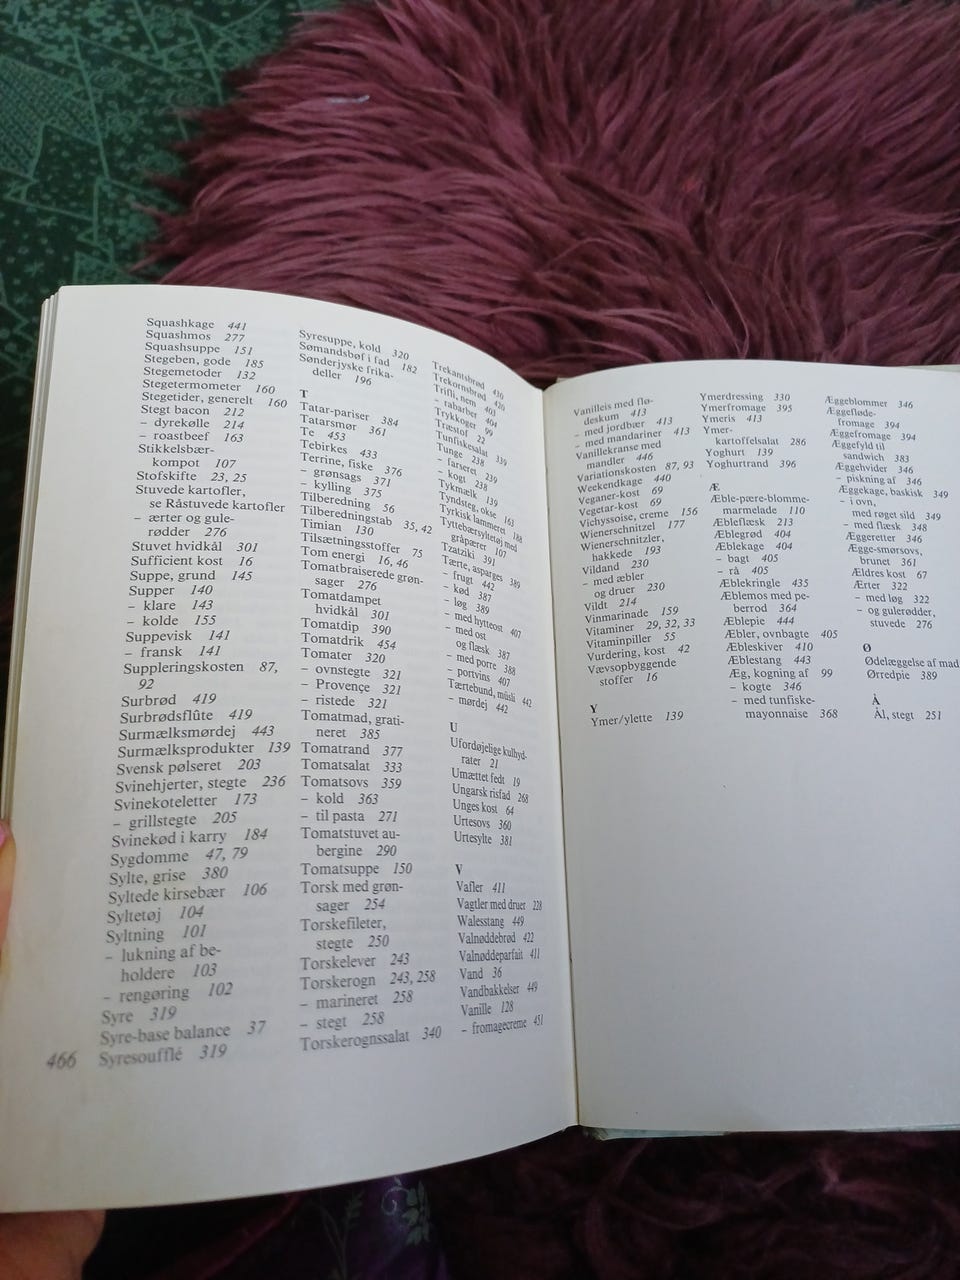 Squashkage 441
Squashmos 277
Squashsuppe 151
Stegeben, gode 185
Stegemetoder 132
Stegetermometer 160
Stegetider, generelt 160
Stegt bacon 212
– dyrekølle 214
– roastbeef 163
Stikkelsbær-
kompot 107
Stofskifte 23, 25
Stuvede kartofler,
se Råstuvede kartofler
– ærter og gule-
rødder 276
Stuvet hvidkål 301
Sufficient kost 16
Suppe, grund 145
Supper 140
– klare 143
– kolde 155
Suppevisk 141
– fransk 141
Suppleringskosten 87,
92
Surbrød 419
Surbrødsflûte 419
Surmælksmørdej 443
Surmælksprodukter 139
Svensk pølseret 203
Svinehjerter, stegte 236
Svinekoteletter 173
– grillstegte 205
Svinekød i karry 184
Sygdomme 47, 79
Sylte, grise 380
Syltede kirsebær 106
Syltetøj 104
Syltning 101
– lukning af be-
holdere 103
– rengøring 102
Syre 319
Syre-base balance 37
Syresoufflé 319
466
Syresuppe, kold 320
Sømandsbøf i fad 182
Sønderjyske frika-
deller 196
T
Tatar-pariser 384
Tatarsmør 361
Te 453
Tebirkes 433
Terrine, fiske 376
– grønsags 371
– kylling 375
Tilberedning 56
Tilberedningstab 35, 42
Timian 130
Tilsætningsstoffer 75
Tom energi 16, 46
Tomatbraiserede grøn-
sager 276
Tomatdampet
hvidkål 301
Tomatdip 390
Tomatdrik 454
Tomater 320
– ovnstegte 321
– Provençe 321
– ristede 321
Tomatmad, grati-
neret 385
Tomatrand 377
Tomatsalat 333
Tomatsovs 359
– kold 363
– til pasta 271
Tomatstuvet au-
bergine 290
Tomatsuppe 150
Torsk med grøn-
sager 254
Torskefileter,
stegte 250
Torskelever 243
Torskerogn 243, 258
– marineret 258
– stegt 258
Torskerognssalat 340
Trekantsbrød 430
Trekornsbrød 420
Trifli, nem 403
– rabarber 404
Trykkoger 99
Træstof 22
Tunfiskesalat 339
Tunge 238
– farseret 239
– kogt 238
Tykmælk 139
Tyndsteg, okse 163
Tyrkisk lammeret 188
Tyttebærsyltetøj med
gråpærer 107
Tzatziki 391
Tærte, asparges 389
– frugt 442
– kød 387
– løg 389
– med hytteost 407
– med ost
og flæsk 387
– med porre 388
– portvins 407
Tærtebund, müsli 442
– mørdej 442
U
Ufordøjelige kulhyd-
rater 21
Umættet fedt 19
Ungarsk risfad 268
Unges kost 64
Urtesovs 360
Urtesylte 381
V
Vafler 411
Vagtler med druer 228
Walesstang 449
Valnøddebrød 422
Valnøddeparfait 411
Vand 36
Vandbakkelser 449
Vanille 128
– fromagecreme 451
Vanilleis med flø-
deskum 413
– med jordbær 413
– med mandariner 413
Vanillekranse med
mandler 446
Variationskosten 87, 93
Weekendkage 440
Veganer-kost 69
Vegetar-kost 69
Vichyssoise, creme 156
Wienerschnitzel 177
Wienerschnitzler,
hakkede 193
Vildand 230
– med æbler
og druer 230
Vildt 214
Vinmarinade 159
Vitaminer 29, 32, 33
Vitaminpiller 55
Vurdering, kost 42
Vævsopbyggende
stoffer 16
Y
Ymer/ylette 139
Ymerdressing 330
Ymerfromage 395
Ymeris 413
Ymer-
kartoffelsalat 286
Yoghurt 139
Yoghurtrand 396
Æ
Æble-pære-blomme-
marmelade 110
Æbleflæsk 213
Æblegrød 404
Æblekage 404
– bagt 405
– rå 405
Æblekringle 435
Æblemos med pe-
berrod 364
Æblepie 444
Æbler, ovnbagte 405
Æbleskiver 410
Æblestang 443
Æg, kogning af 99
– kogte 346
– med tunfiske-
mayonnaise 368
Æggeblommer 346
Æggefløde-
fromage 394
Æggefromage 394
Æggefyld til
sandwich 383
Æggehvider 346
– piskning af 346
Æggekage, baskisk 349
– i ovn,
med røget sild 349
– med flæsk 348
Æggeretter 346
Ægge-smørsovs,
brunet 361
Ældres kost 67
Ærter 322
– med løg 322
– og gulerødder,
stuvede 276
Ø
Ødelæggelse af mad
Ørredpie 389
Å
Ål, stegt 251